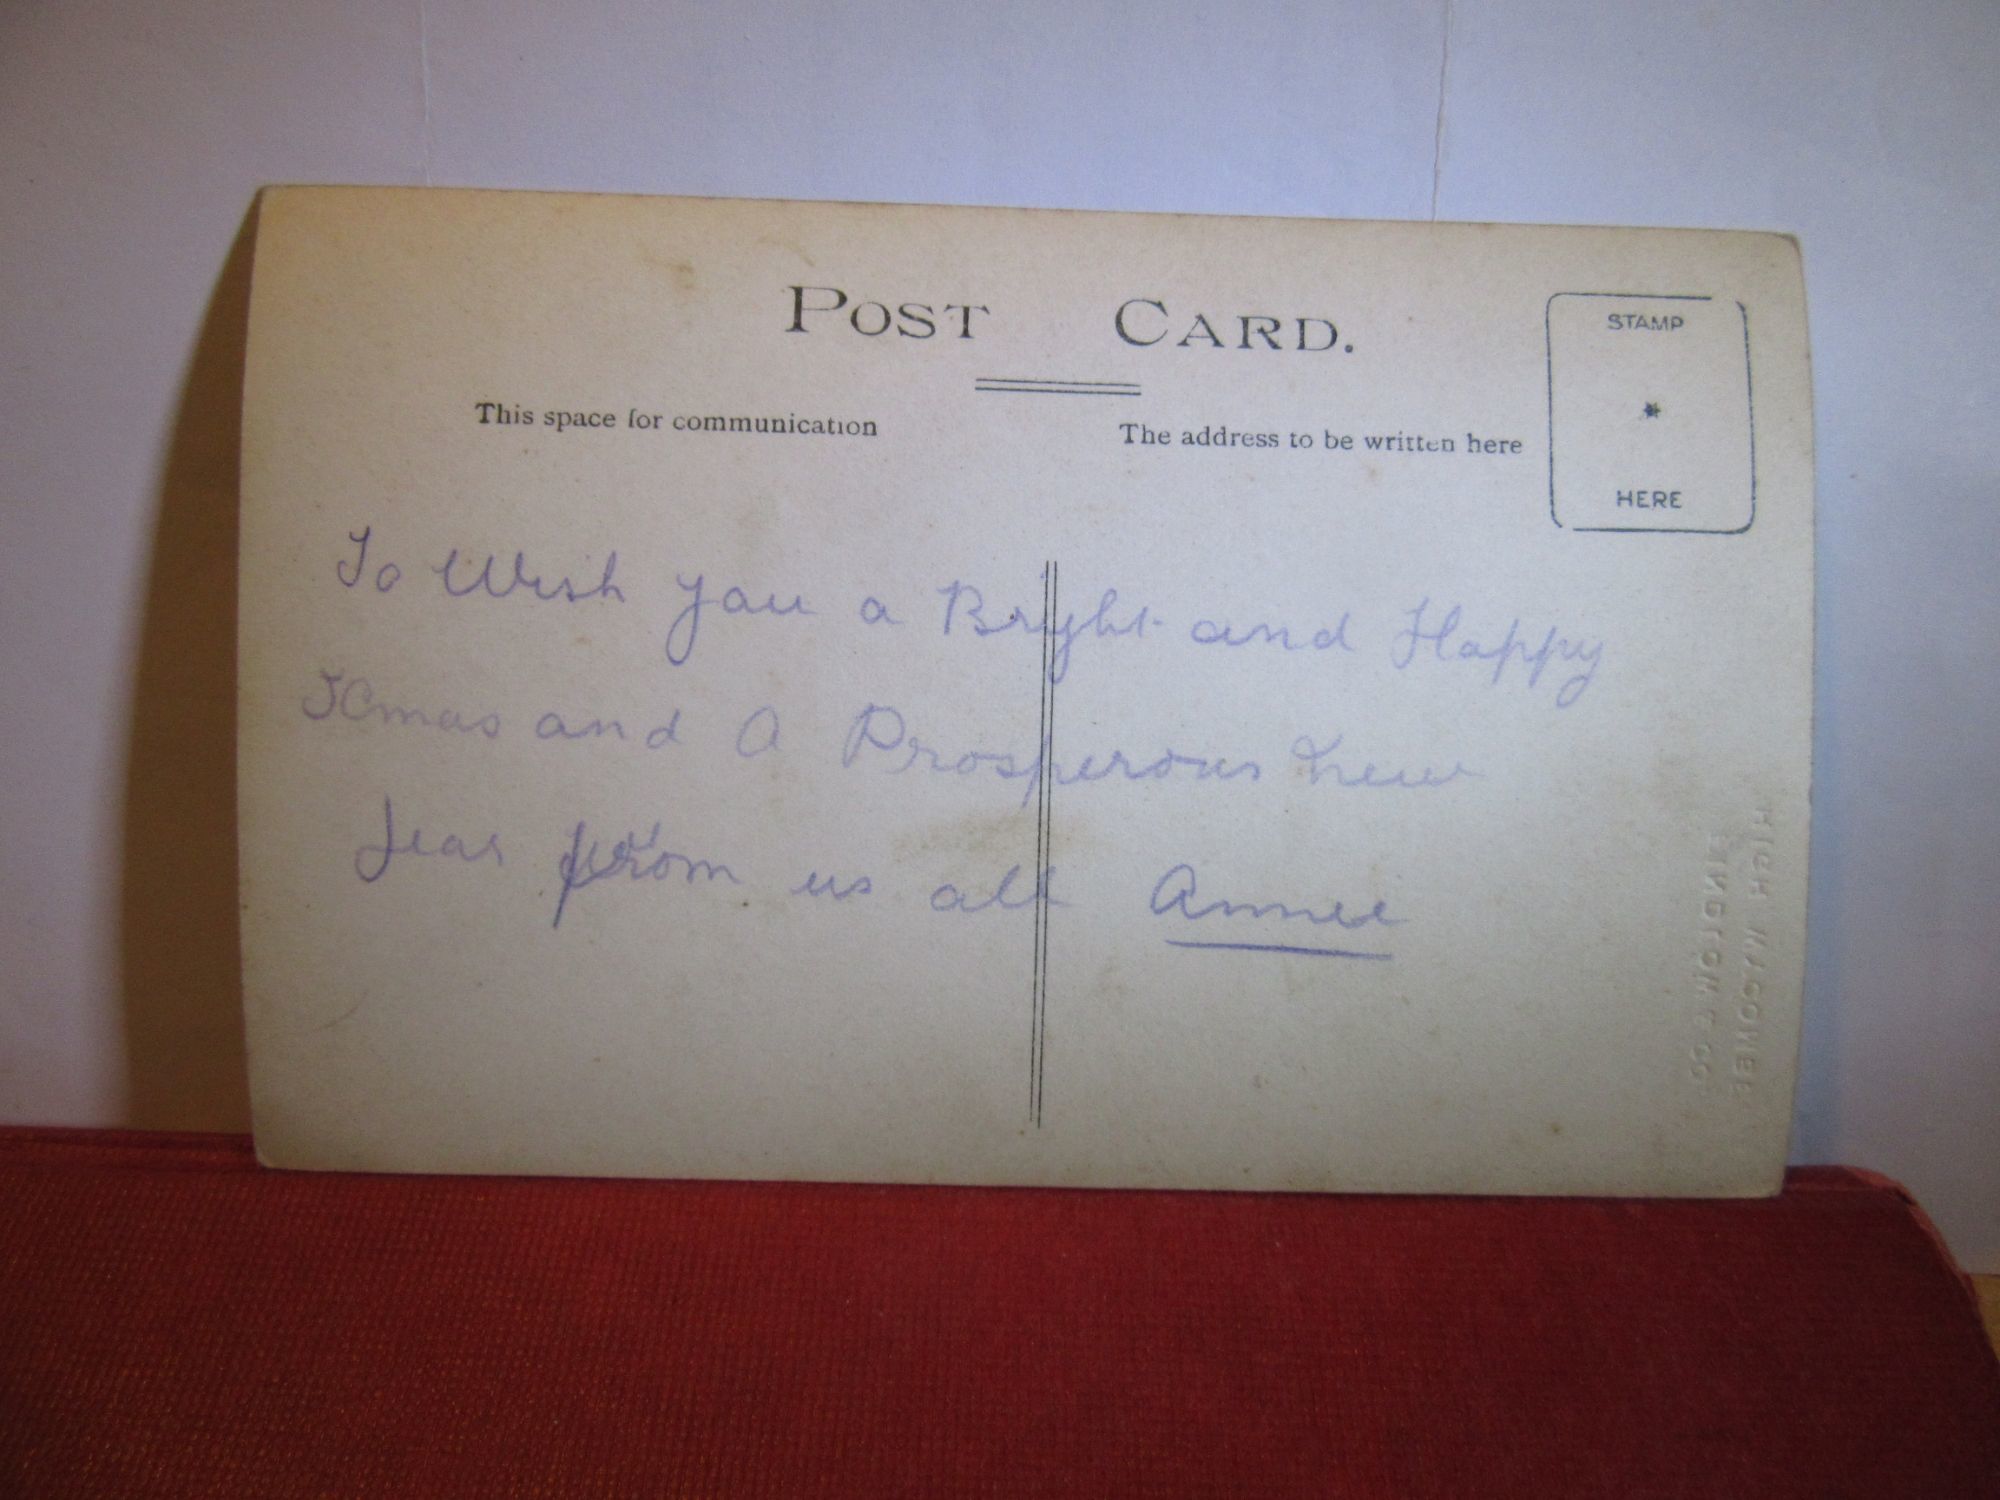 POST CARD.
STAMP
HERE
This space for communication
The address to be written here
To Wish you a Bright and Happy
Xmas and A Prosperous new
year from us all Annie
HIGH WYCOMBE